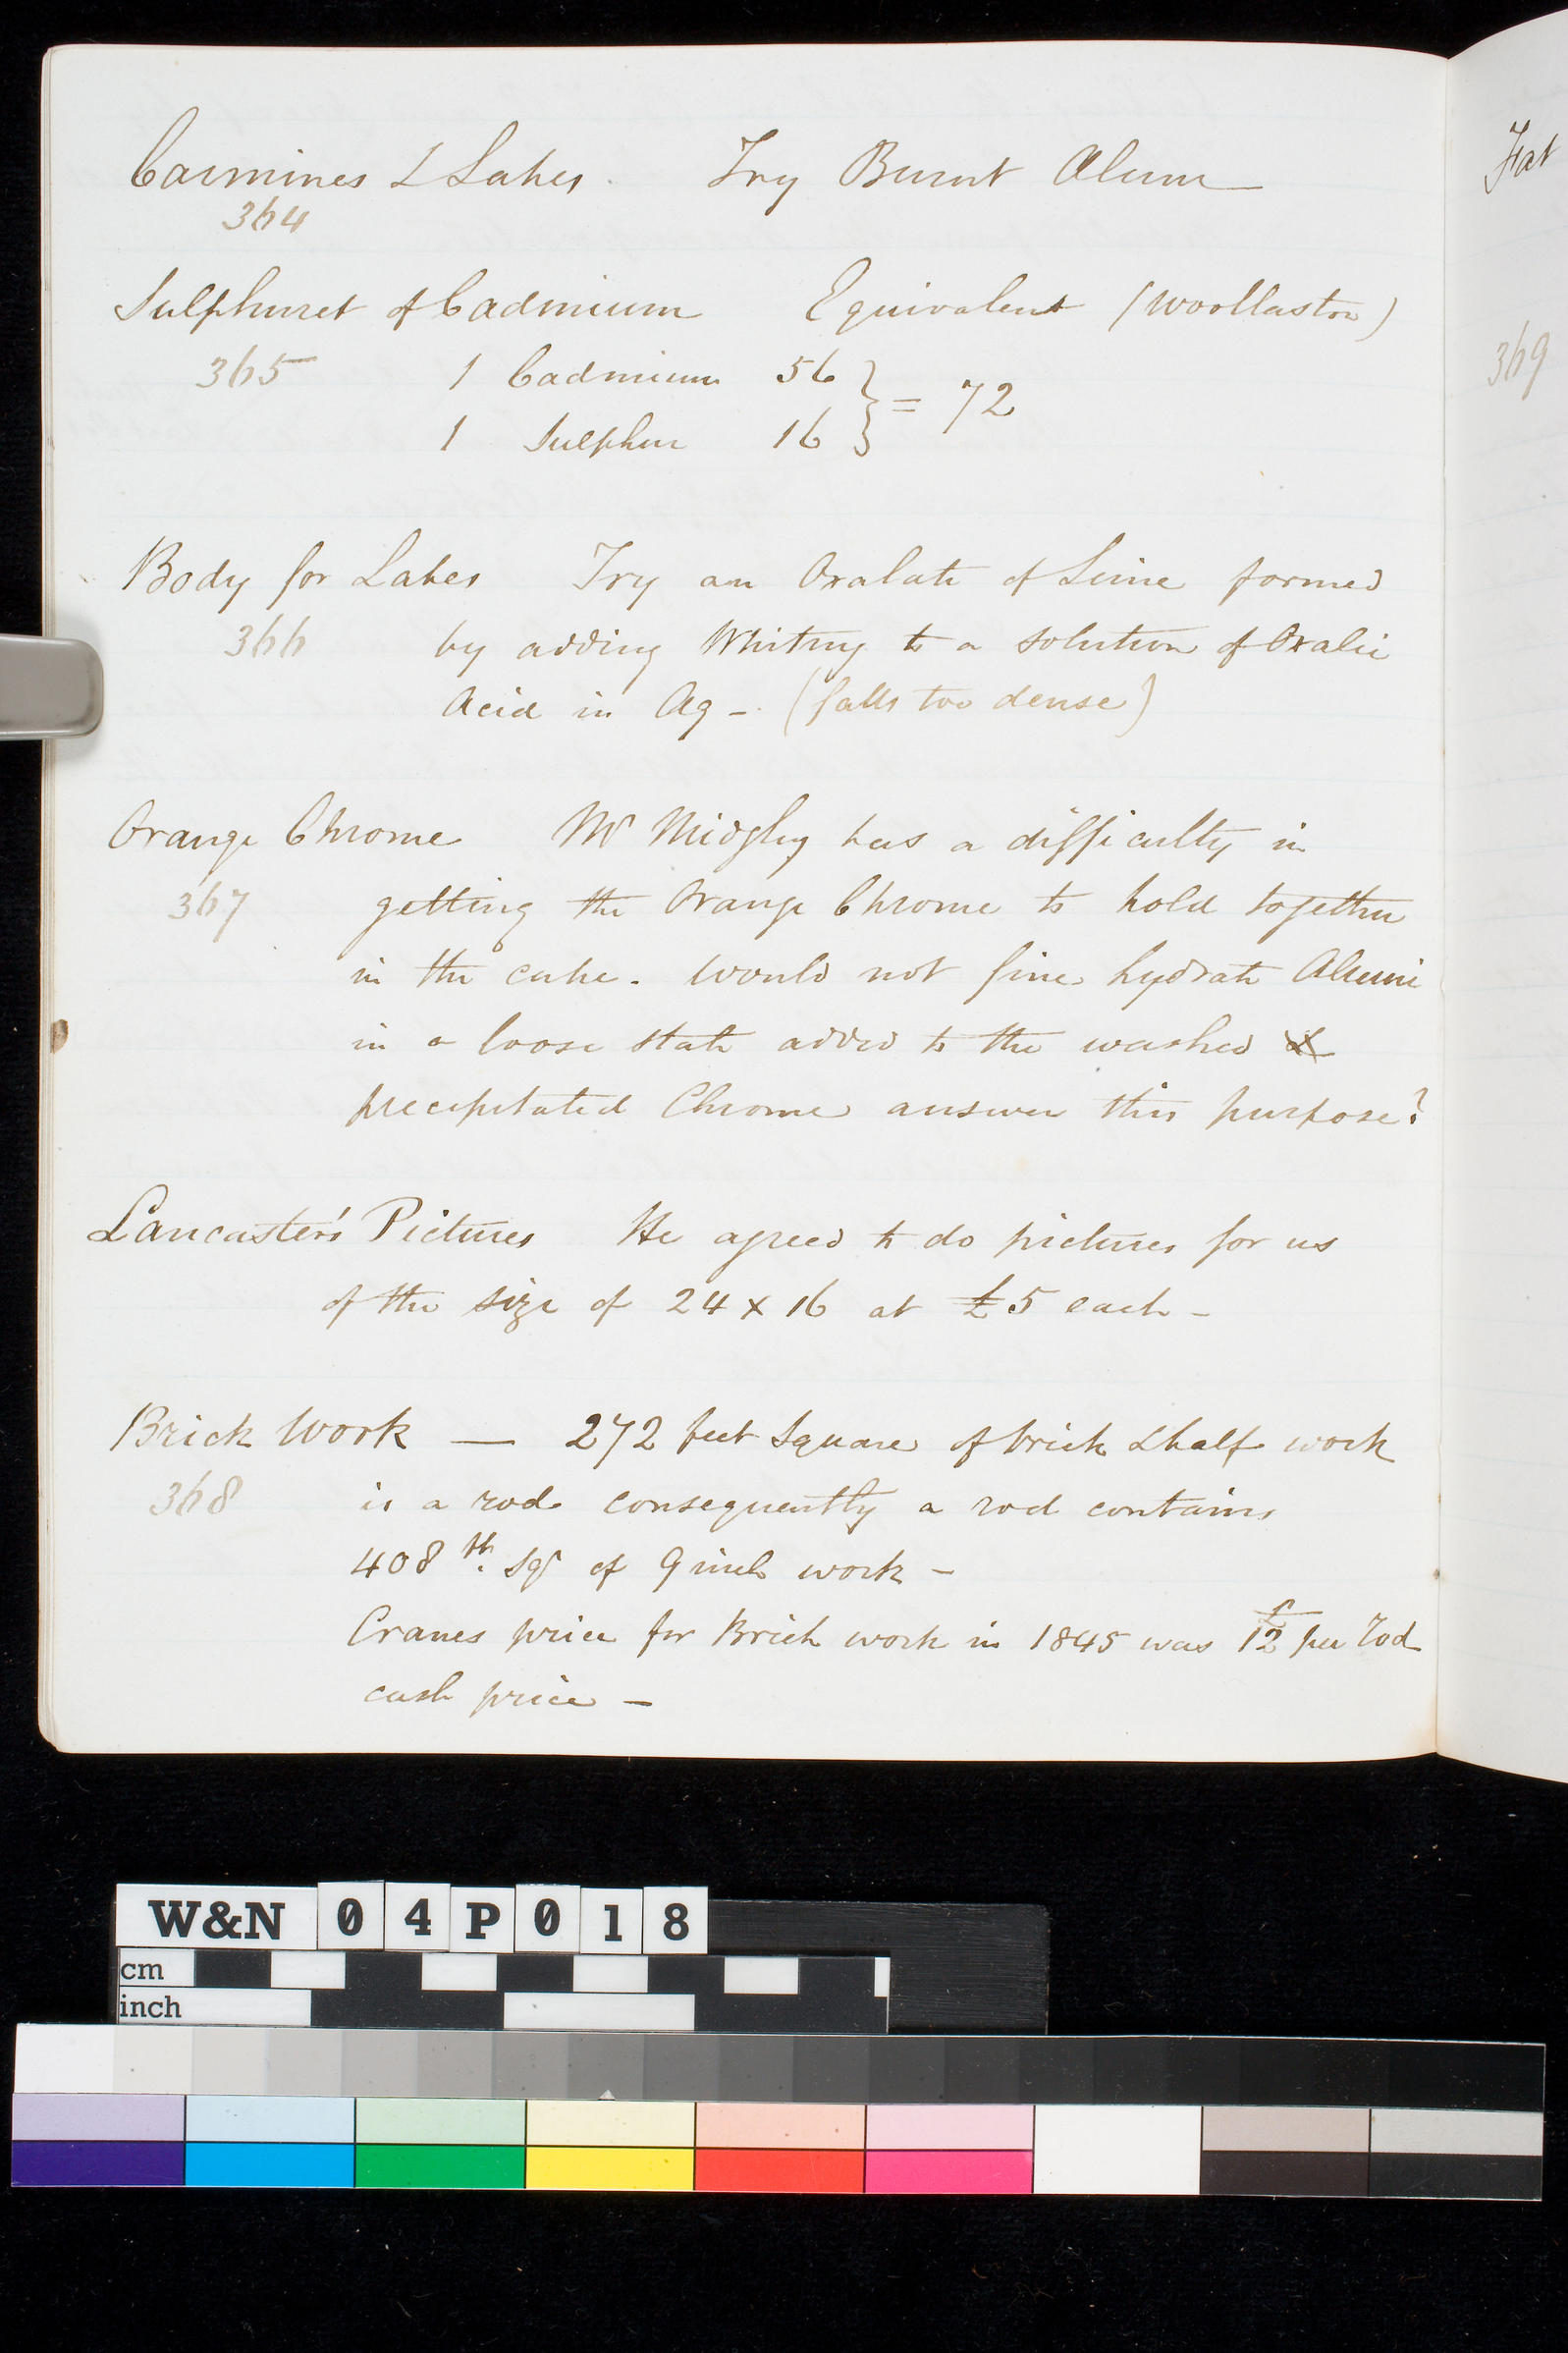 Carmines & Lakes. Try Burnt Alum
364
Sulphuret of Cadmium Equivalent (Woollaston)
365 1 Cadmium 56 } = 72
1 Sulphur 16
Body for Lakes Try an Oxalate of Lime formed
366 by adding Whiting to a solution of Oxalic
Acid in Aq - (falls too dense)
Orange Chrome Mr Midgley has a difficulty in
367 getting the Orange Chrome to hold together
in the cake. Would not fine hydrate Alumi
in a loose state added to the washed &
precipitated Chrome answer this purpose?
Lancaster's Pictures He agreed to do pictures for us
of the size of 24 x 16 at £5 each -
Brick Work — 272 feet square of brick & half work
368 is a rod consequently a rod contains
408 ft. sqr of 9 inch work -
Cranes price for Brick work in 1845 was £12 per Rod
cash price -
Fat
369
W&N 04P018
cm
inch